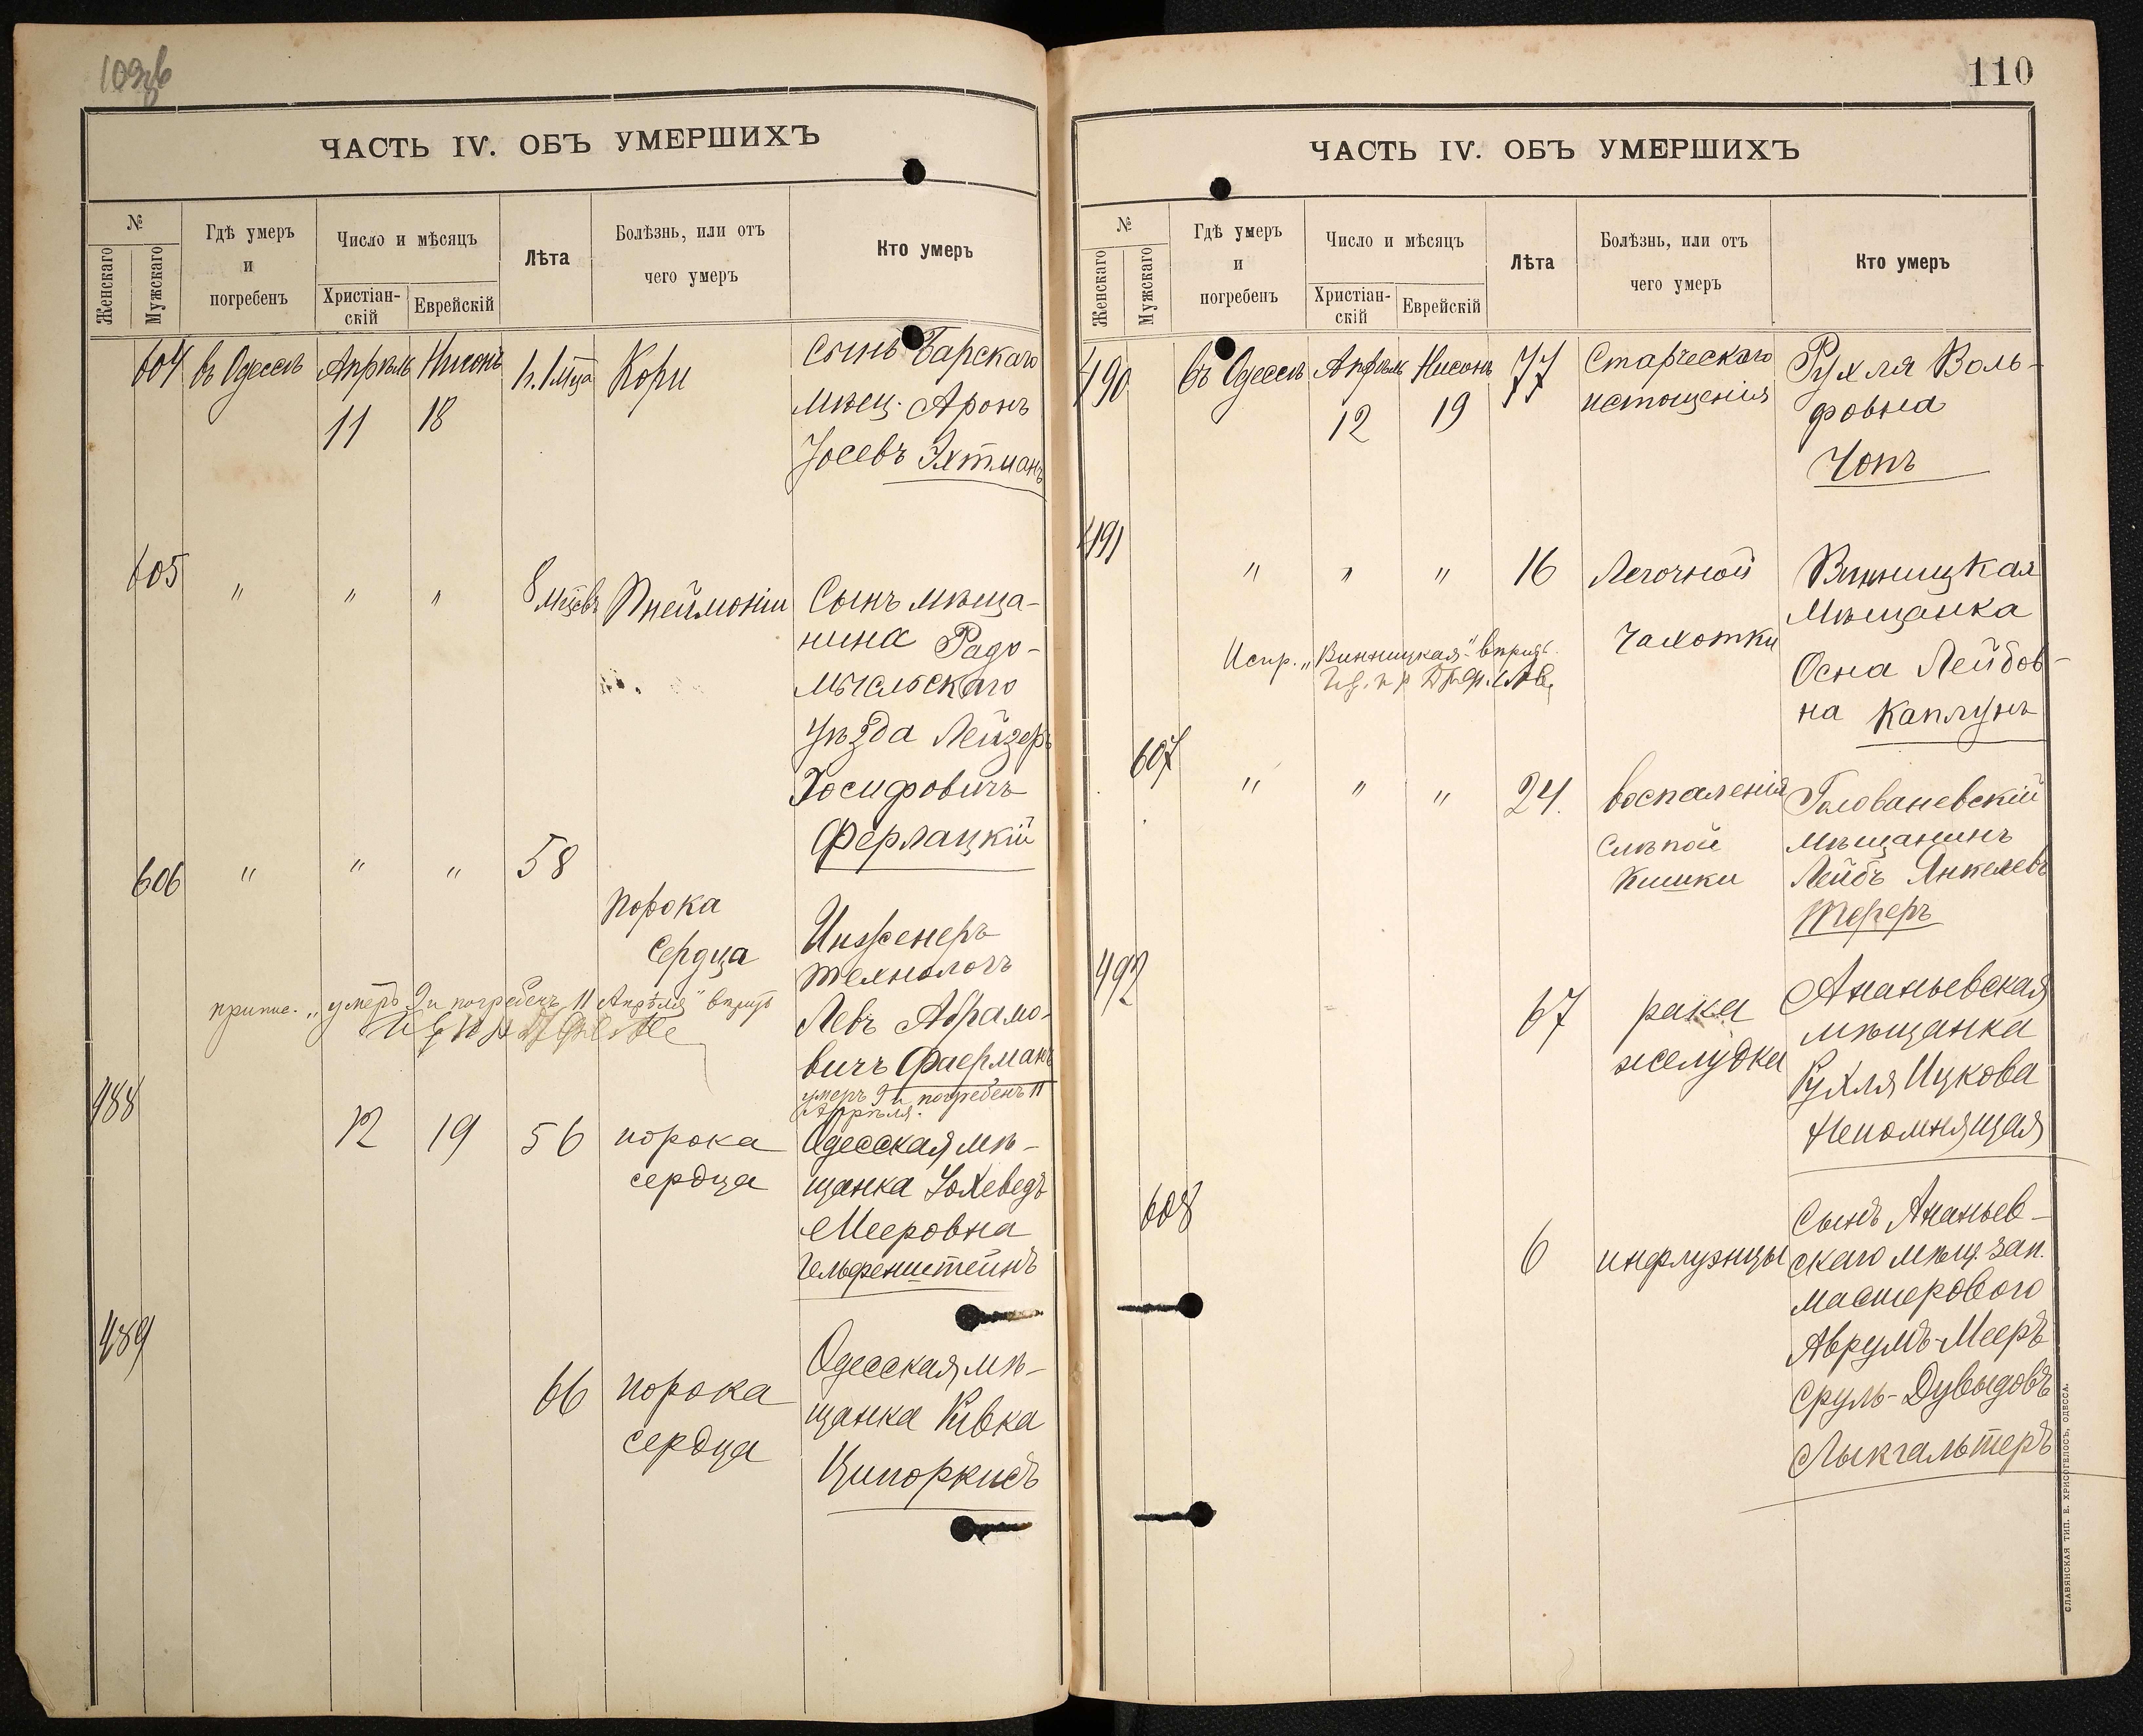 ЧАСТЬ IV. ОБЪ УМЕРШИХЪ
№
Женскаго
Мужскаго
Гдѣ умеръ
и
погребенъ
Число и мѣсяцъ
Христіан-
скій
Еврейскій
Лѣта
Болѣзнь, или отъ
чего умеръ
Кто умеръ
604 въ Одессѣ Апрѣль Нисонъ Кори Сынъ Барскаго
11 18 мѣщ. Аронъ
Іосевъ Эхтманъ
605 " " " 8 мѣсцвъ Пнеймоніи Сынъ мѣща-
нина Радо-
мысльскаго
уѣзда Лейзеръ
Іосифовичъ
Ферлацкій
606 " " " 58 порока Инженеръ
сердца технологъ
Левъ Абрамо-
вичъ Фаерманъ
умеръ 9 и погребенъ 11
Апрѣля.
припис. „умеръ 9 и погребенъ 11 Апрѣля"
488 12 19 56 порока Одесская мѣ-
сердца щанка Іохеведъ
Мееровна
Гельфенштейнъ
489 66 порока Одесская мѣ-
сердца щанка Ривка
Ципоркисъ
110
ЧАСТЬ IV. ОБЪ УМЕРШИХЪ
№
Женскаго
Мужскаго
Гдѣ умеръ
и
погребенъ
Число и мѣсяцъ
Христіан-
скій
Еврейскій
Лѣта
Болѣзнь, или отъ
чего умеръ
Кто умеръ
490 въ Одессѣ Апрѣль Нисонъ 77 Старческаго Рухля Воль-
12 19 истощенія фовна
Чопъ
491 " " " 16 Легочной Винницкая
чахотки Мѣщанка
Осна Лейбов-
на Каплунъ
Испр. „Винницкая"
607 " " " 24. воспаленія Голованевскій
слѣпой мѣщанинъ
кишки Лейбъ Янкелевъ
492 67 рака Ананьевская
желудка мѣщанка
Рухля Ицкова
Непомнящая
608 6 инфлуэнцы Сынъ Ананьев-
скаго мѣщ. зап.
мастерового
Аврумъ-Мееръ
Сруль-Дувыдовъ
Лыкгальтеръ
СЛАВЯНСКАЯ ТИП. Е. ХРИСОГЕЛОСЪ, ОДЕССА.